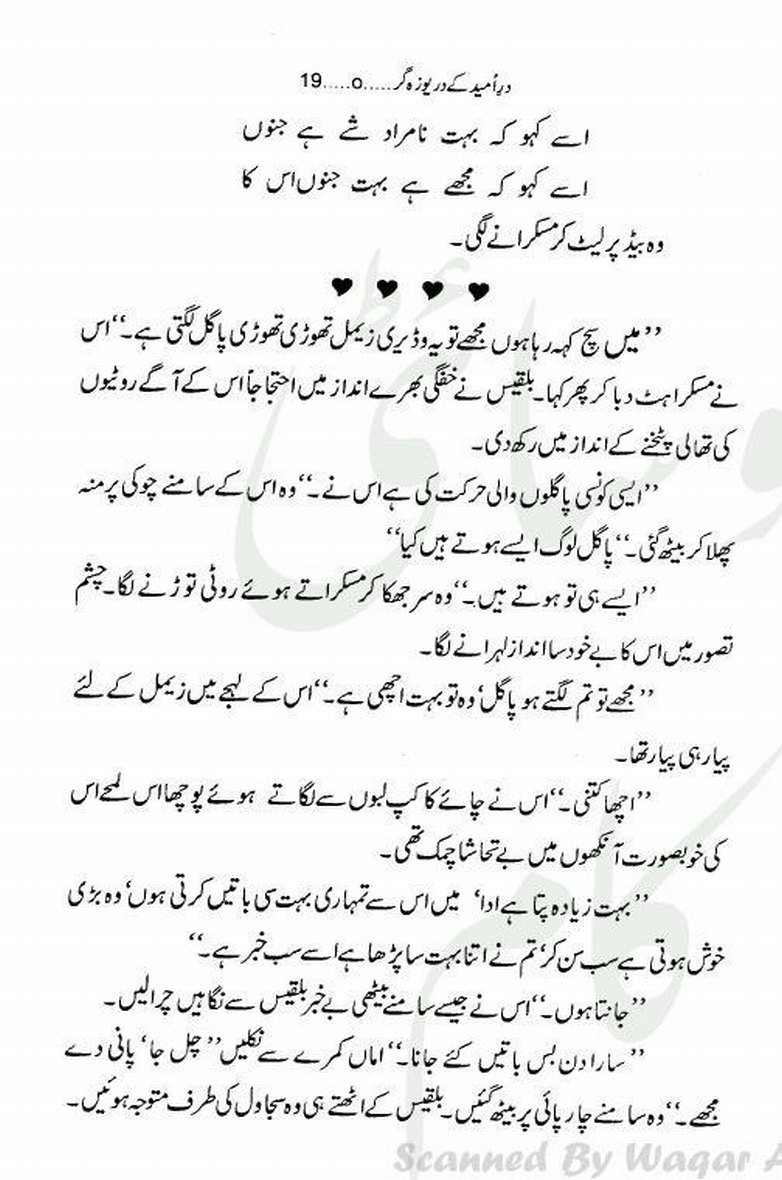 درِ اُمید کے دریوزہ گر.....o.....19
اسے کہو کہ بہت نامراد شے ہے جنوں
اسے کہو کہ مجھے ہے بہت جنوں اس کا
وہ بیڈ پر لیٹ کر مسکرانے لگی۔
’’میں سچ کہہ رہا ہوں مجھے تو یہ وڈیری زیمل تھوڑی تھوڑی پاگل لگتی ہے۔‘‘ اس
نے مسکراہٹ دبا کر پھر کہا۔ بلقیس نے خفگی بھرے انداز میں احتجاجاً اس کے آگے روٹیوں
کی تھالی پٹخنے کے انداز میں رکھ دی۔
’’ایسی کونسی پاگلوں والی حرکت کی ہے اس نے۔‘‘ وہ اس کے سامنے چوکی پر منہ
پھلا کر بیٹھ گئی۔ ‘‘پاگل لوگ ایسے ہوتے ہیں کیا‘‘
’’ایسے ہی تو ہوتے ہیں۔‘‘ وہ سر جھکا کر مسکراتے ہوئے روٹی توڑنے لگا۔ چشم
تصور میں اس کا بے خود سا انداز لہرانے لگا۔
’’مجھے تو تم لگتے ہو پاگل‘ وہ تو بہت اچھی ہے۔‘‘ اس کے لہجے میں زیمل کے لئے
پیار ہی پیار تھا۔
’’اچھا کتنی۔‘‘ اس نے چائے کا کپ لبوں سے لگاتے ہوئے پوچھا اس لمحے اس
کی خوبصورت آنکھوں میں بے تحاشا چمک تھی۔
’’بہت زیادہ پتا ہے ادا‘ میں اس سے تمہاری بہت سی باتیں کرتی ہوں‘ وہ بڑی
خوش ہوتی ہے سب سن کر‘ تم نے اتنا بہت سا پڑھا ہے اسے سب خبر ہے۔‘‘
’’جانتا ہوں۔‘‘ اس نے جیسے سامنے بیٹھی بے خبر بلقیس سے نگاہیں چرا لیں۔
’’سارا دن بس باتیں کئے جانا۔‘‘ اماں کمرے سے نکلیں’’ چل جا‘ پانی دے
مجھے۔‘‘ وہ سامنے چارپائی پر بیٹھ گئیں۔ بلقیس کے اٹھتے ہی وہ سجاول کی طرف متوجہ ہوئیں۔
Scanned By Waqar A